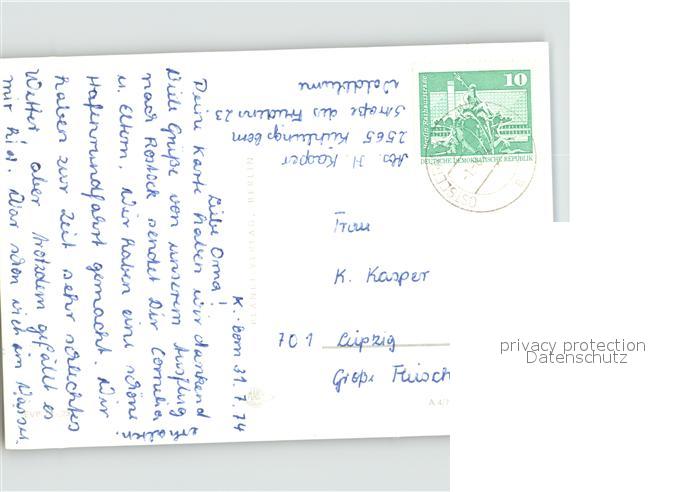 K.-born 31.7.74
Liebe Oma!
Deine Karte haben wir dankend erhalten.
Viele Grüße von unserem Ausflug
nach Rostock sendet Dir Cornelia
u. Eltern. Wir haben eine schöne
Hafenrundfahrt gemacht. Wir
haben zur Zeit sehr schlechtes
Wetter, aber trotzdem gefällt es
mir hier. War schon 
im Wasser.
Abs. H. Kasper
2565 Kühlungsborn
Straße des Friedens 23
Waldblume
10
DEUTSCHE DEMOKRATISCHE REPUBLIK
Frau
K. Kasper
701 Leipzig
Große Fleisch
privacy protection
Datenschutz